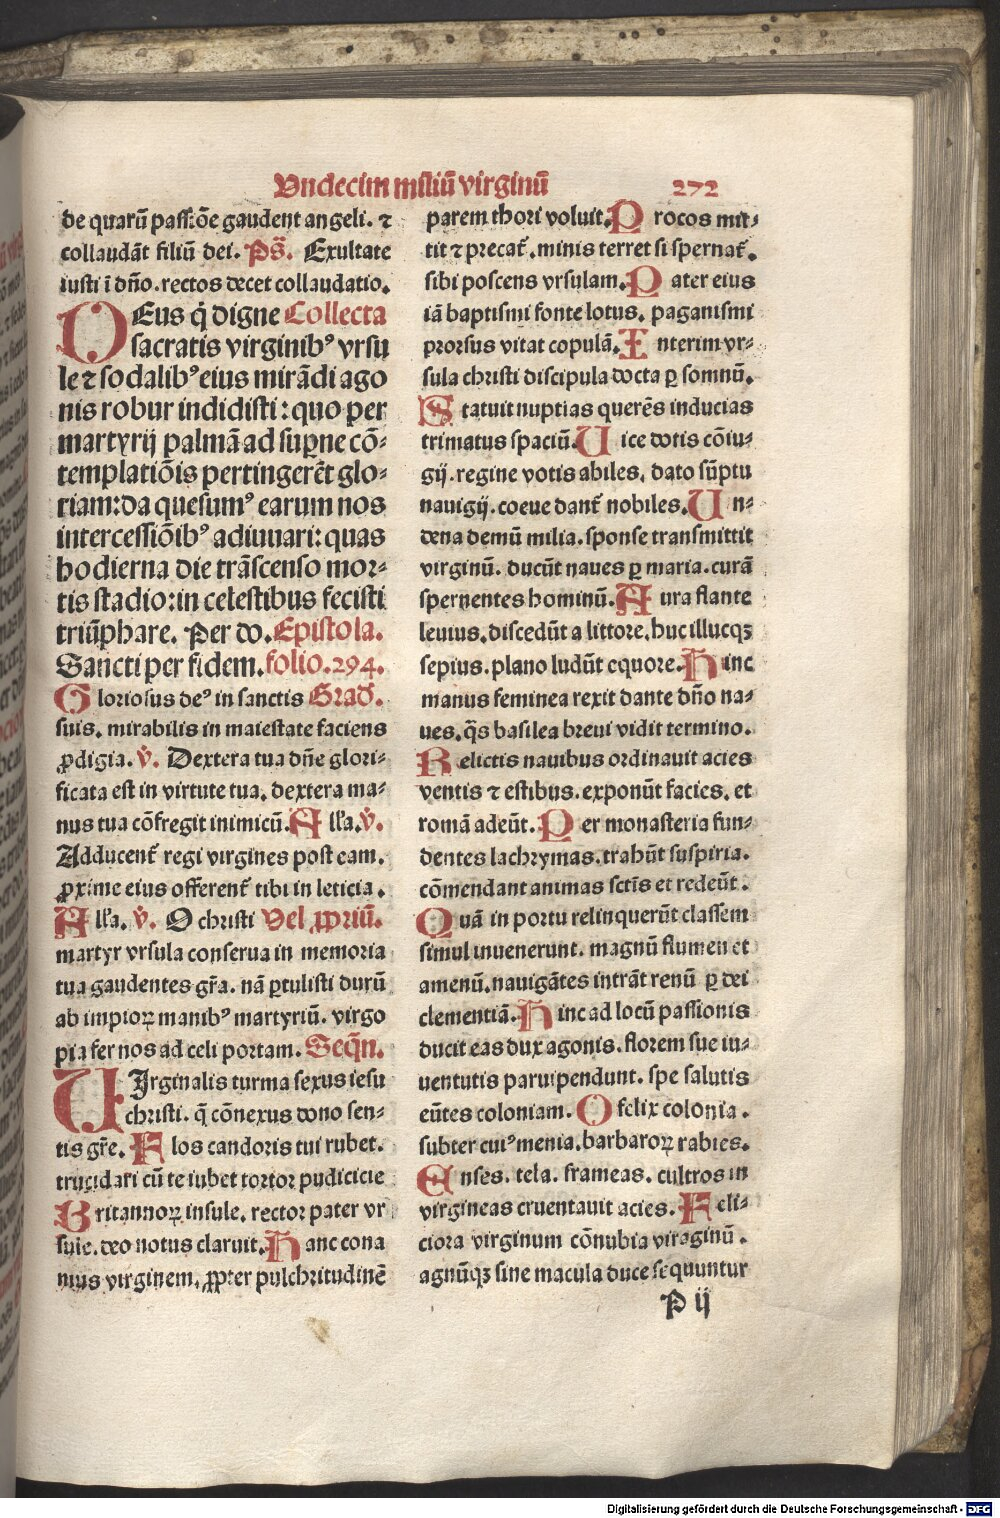 Undecim miliū virginū 272
de quarū passiōe gaudent angeli. ⁊
collaudāt filiū dei. Ps̄. Exultate
iusti ī dño. rectos decet collaudatio.
DEus q̄ digne Collecta
sacratis virginibꝰ vrsu
le ⁊ sodalibꝰ eius mirādi ago
nis robur indidisti: quo per
martyrij palmā ad suꝑne cō-
templatiōis pertingerēt glo-
riam: da quesumꝰ earum nos
intercessiōibꝰ adiuuari: quas
hodierna die trāscenso mor-
tis stadio: in celestibus fecisti
triūphare. Per do. Epistola.
Sancti per fidem. folio. 294.
Gloriosus deꝰ in sanctis Grad̄.
suis. mirabilis in maiestate faciens
ꝓdigia. v̄. Dextera tua dñe glori-
ficata est in virtute tua. dextera ma-
nus tua cōfregit inimicū. Alľa. v̄.
Adducent̄ regi virgines post eam.
ꝓxime eius offerent̄ tibi in leticia.
Alľa. v̄. O christi Vel ꝓpriū.
martyr vrsula conserua in memoria
tua gaudentes gr̄a. nā ꝑtulisti durū
ab impioꝝ manibꝰ martyriū. virgo
pia fer nos ad celi portam. Seqn̄.
VIrginalis turma sexus iesu
christi. q̄ cōnexus dono sen-
tis gr̄e. Flos candoris tui rubet.
trucidari cū te iubet tortor pudicicie
Britannoꝝ insule. rector pater vr
sule. deo notus claruit. Hanc cona
mus virginem. ꝓpter pulchritudinē
parem thori voluit. Procos mit-
tit ⁊ precat̄. minis terret si spernat̄.
sibi poscens vrsulam. Pater eius
iā baptismi fonte lotus. paganismi
prorsus vitat copulā. Interim vr-
sula christi discipula docta ꝑ somnū.
Statuit nuptias querēs inducias
trimatus spaciū. Uice dotis cōiu-
gij. regine votis abiles. dato sūptu
nauigij. coeue dant̄ nobiles. Un-
dena demū milia. sponse transmittit
virginū. ducūt naues ꝑ maria. curā
spernentes hominū. Aura flante
leuius. discedūt a littore. huc illucqꝫ
sepius. plano ludūt equore. Hinc
manus feminea rexit dante dño na-
ues. q̄s basilea breui vidit termino.
Relictis nauibus ordinauit acies
ventis ⁊ estibus. exponūt facies. et
romā adeūt. Per monasteria fun-
dentes lachrymas. trahūt suspiria.
cōmendant animas sctīs et redeūt.
Quā in portu relinquerūt classem
simul inuenerunt. magnū flumen et
amenū. nauigātes intrāt renū ꝑ dei
clementiā. Hinc ad locū passionis
ducit eas dux agonis. florem sue iu-
uentutis paruipendunt. spe salutis
eūtes coloniam. O felix colonia.
subter cuiꝰ menia. barbaroꝝ rabies.
Enses. tela. frameas. cultros in
virgineas cruentauit acies. Feli-
ciora virginum cōnubia viraginū.
agnūqꝫ sine macula duce sequuntur
P ij
Digitalisierung gefördert durch die Deutsche Forschungsgemeinschaft - DFG